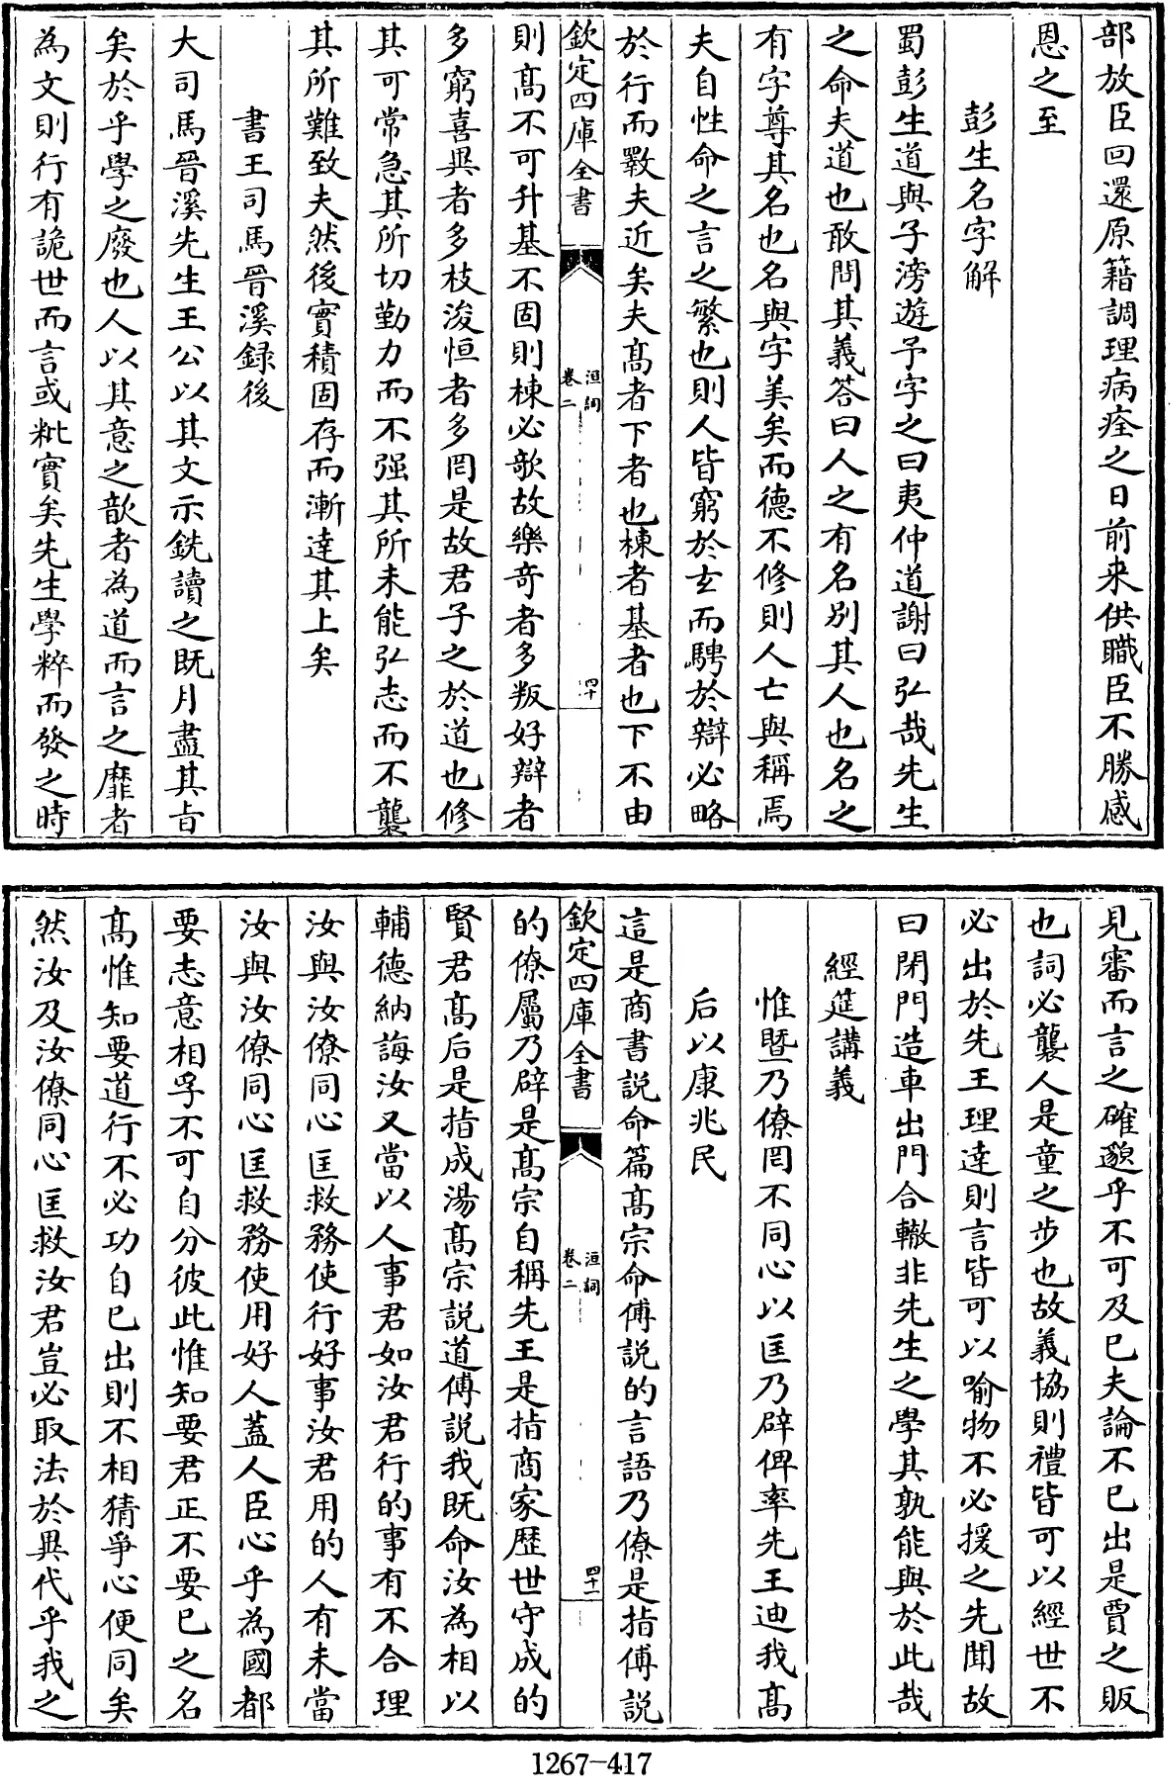 部放臣回還原籍調理病痊之日前来供職臣不勝感
恩之至
彭生名字解
蜀彭生道與子滂遊予字之曰夷仲道謝曰弘哉先生
之命夫道也敢問其義答曰人之有名别其人也名之
有字尊其名也名與字美矣而德不修則人亡與稱焉
夫自性命之言之繁也則人皆窮於玄而騁於辯必略
於行而斁夫近矣夫髙者下者也棟者基者也下不由
欽定四庫全書
洹詞
卷二
四十
則髙不可升基不固則棟必欹故樂竒者多叛好辯者
多窮喜異者多枝浚恒者多罔是故君子之於道也修
其可常急其所切勤力而不强其所未能弘志而不襲
其所難致夫然後實積固存而漸達其上矣
書王司馬晉溪録後
大司馬晉溪先生王公以其文示銑讀之既月盡其㫖
矣於乎學之廢也人以其意之歆者為道而言之靡者
為文則行有詭世而言或粃實矣先生學粹而發之時
見審而言之確邈乎不可及已夫論不已出是賈之販
也詞必襲人是童之步也故義協則禮皆可以經世不
必出於先王理達則言皆可以喻物不必援之先聞故
曰閉門造車出門合轍非先生之學其孰能與於此哉
經筵講義
惟暨乃僚罔不同心以匡乃辟俾率先王迪我髙
后以康兆民
這是商書説命篇髙宗命傅説的言語乃僚是指傅説
欽定四庫全書
洹詞
卷二
四十一
的僚屬乃辟是髙宗自稱先王是指商家歴世守成的
賢君髙后是指成湯髙宗説道傅説我既命汝為相以
輔德納誨汝又當以人事君如汝君行的事有不合理
汝與汝僚同心匡救務使行好事汝君用的人有未當
汝與汝僚同心匡救務使用好人葢人臣心乎為國都
要志意相孚不可自分彼此惟知要君正不要已之名
髙惟知要道行不必功自已出則不相猜爭心便同矣
然汝及汝僚同心匡救汝君豈必取法於異代乎我之
1267-417